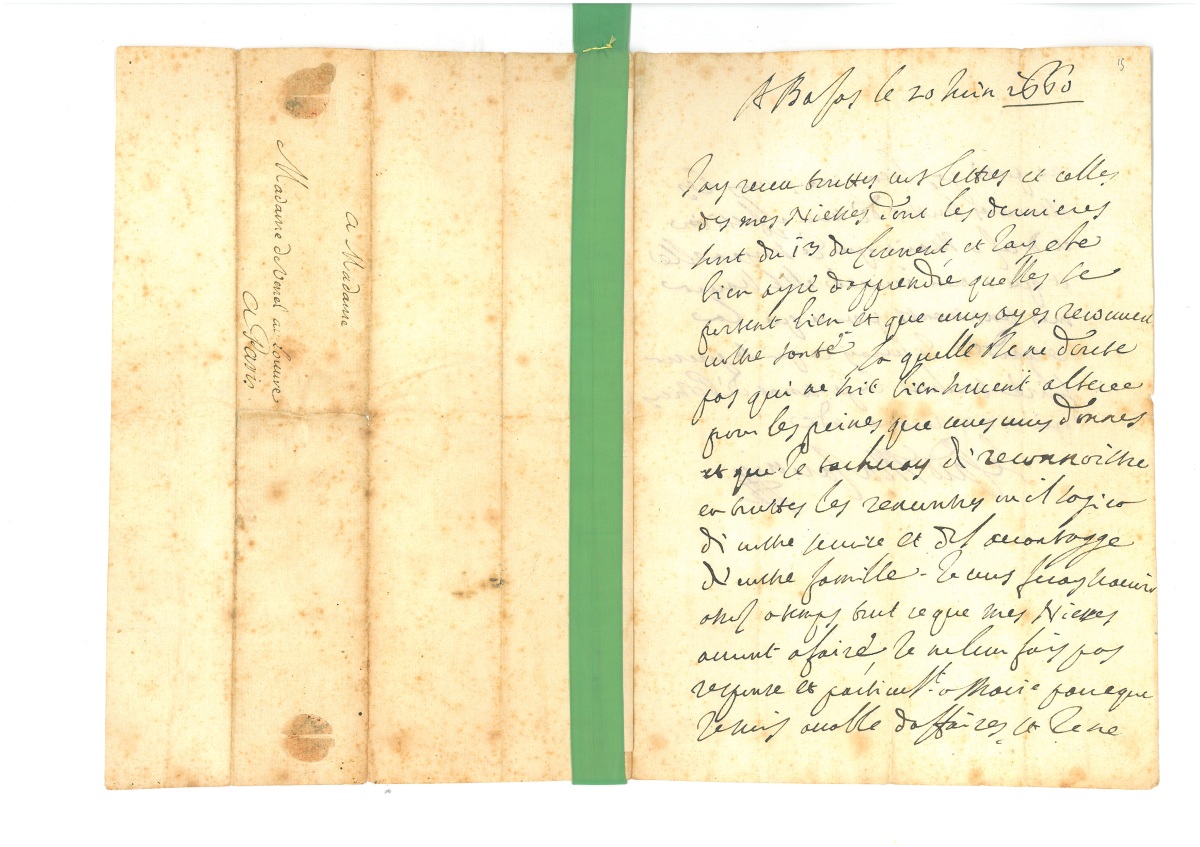 a Madame
Madame de Venel au Louvre
A Paris
15
A Basas le 20 Juin 1660
J'ay receu touttes vos lettres et celles
des mes Nieces dont les dernieres
sont du 13 du Courent et J'ay este
bien ayse d'apprendre quelles se
portent bien et que vous ayes recouvert
vostre santé la quelle Je ne doute
pas qui ne soit bien souvent alteree
pour les peines que vous vous donnes
et que Je tacheray di reconnoistre
en touttes les rencontres ou il s'agira
di vostre service et del avantagge
di vostre famille. Je vous feray scavoir
asses a temps tout ce que mes Nieces
auront a faire Je ne leur fais pas
response et particult. a Marie parceque
Je suis acablé d'affaires, et Je ne